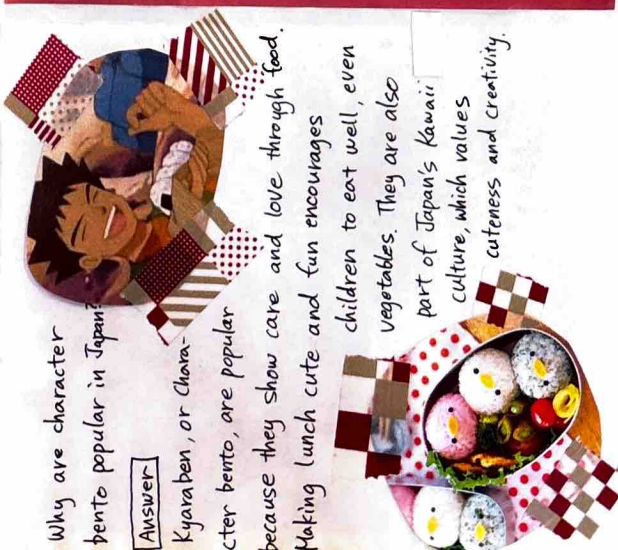 Why are character
bento popular in Japan?
Answer
Kyaraben, or Chara-
cter bento, are popular
because they show care and love through food.
Making lunch cute and fun encourages
children to eat well, even
vegetables. They are also
part of Japan's Kawaii
culture, which values
cuteness and creativity.